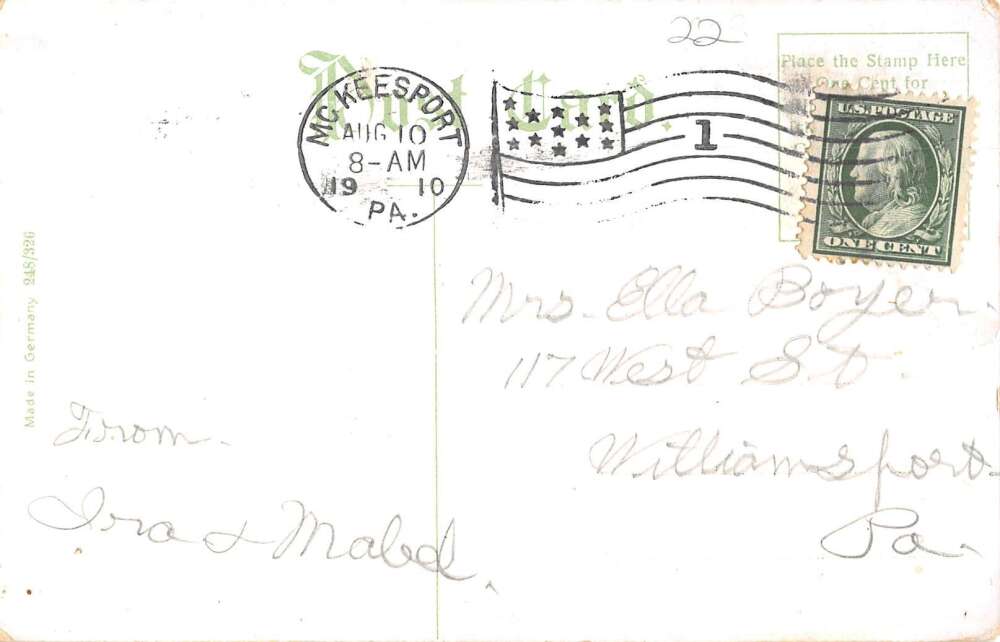 22
Post Card.
Place the Stamp Here
One Cent for
McKEESPORT
AUG 10
8-AM
19 10
PA.
1
U.S. POSTAGE
ONE CENT
Made in Germany 248/326
Mrs. Ella Boyer.
117 West St.
Williamsport
Pa.
From
Ira & Mabel.